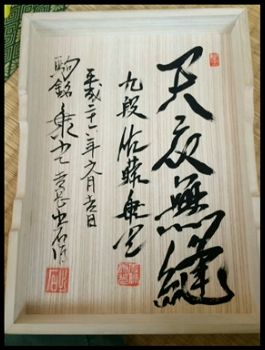 天衣無縫
九段 佐藤康光
平成二十六年六月吉日
駒銘 出石作